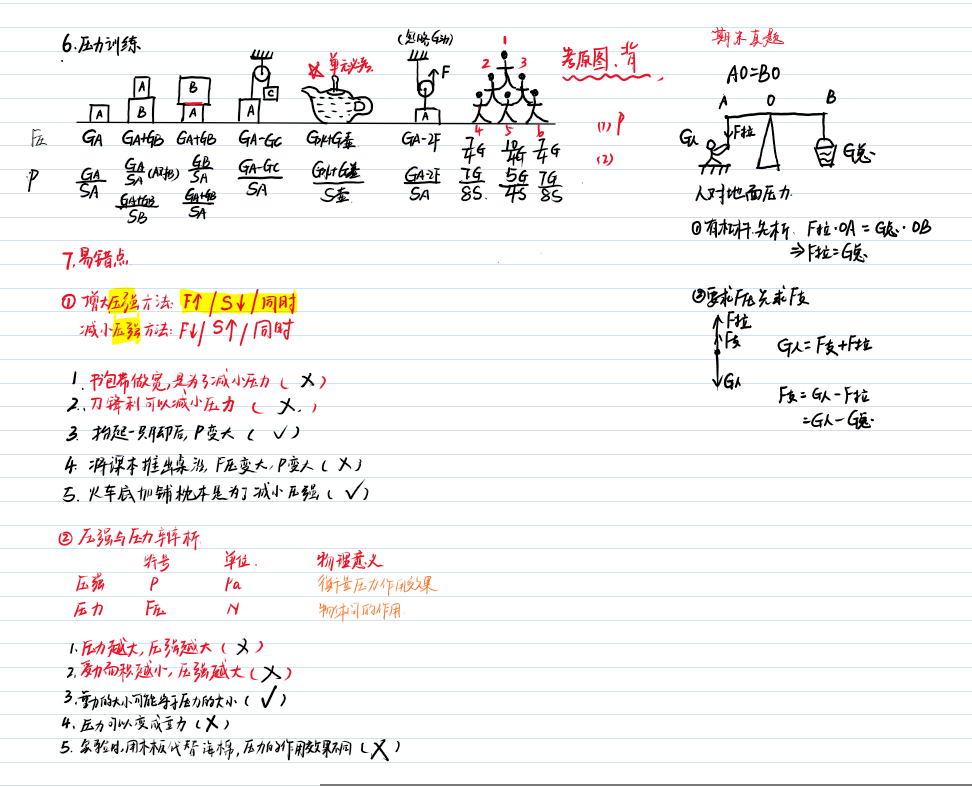 6.压力训练
(忽略G动)
F
1
2 3
4 5 6
A
A B
B A
A C
单元必考
A
考原图、背
(1) P
(2)
F压 GA GA+GB GA+GB GA-GC G水+G壶 GA-2F 7/4G 10/4G 7/4G
P GA/SA GA/SA(A对B) GB/SA GA-GC/SA G水+G壶/S壶 GA-2F/SA 7G/8S 5G/4S 7G/8S
GA+GB/SB GA+GB/SA
7.易错点
① 增大压强方法: F↑/S↓/同时
减小压强方法: F↓/S↑/同时
1.书包带做宽,是为了减小压力 (×)
2.刀锋利可以减小压力 (×)
3.抬起一只脚后,P变大 (√)
4.将课本推出桌沿,F压变大,P变大 (×)
5.火车底加铺枕木是为了减小压强 (√)
② 压强与压力辛辛析
符号 单位 物理意义
压强 P Pa 衡量压力作用效果
压力 F压 N 物体间的作用
1.压力越大,压强越大 (×)
2.受力面积越小,压强越大 (×)
3.重力的大小可能等于压力的大小 (√)
4.压力可以变成重力 (×)
5.实验时,用木板代替海棉,压力的作用效果不同 (×)
期末真题
AO=BO
A O B
G人 F拉 G总
人对地面压力
①有杠杆先析 F拉·OA=G总·OB
⇒F拉=G总
②要求F压先求F支
F拉
F支
G人
G人=F支+F拉
F支=G人-F拉
=G人-G总